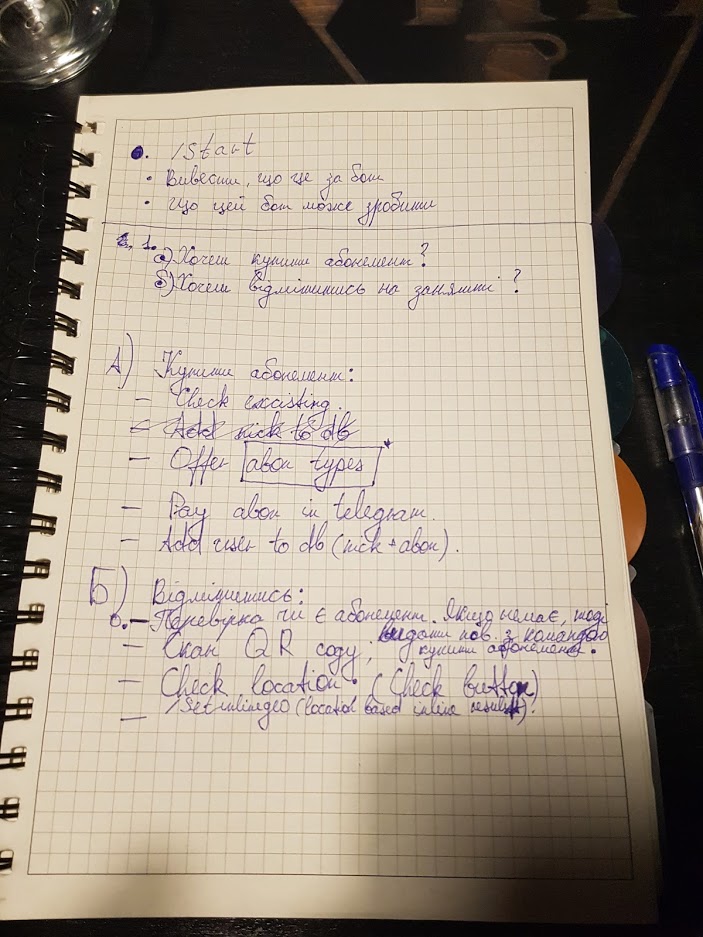 0. /Start
• Вивести, що це за бот
• Що цей бот може зробити
1. а) Хочеш купити абонемент?
б) Хочеш відмітитись на занятті?
А) Купити абонемент:
– Check existing.
– Add nick to db
– Offer abon types*
– Pay abon in telegram
– Add user to db (nick + abon).
Б) Відмітитись:
0. – Перевірка чи є абонемент. Якщо немає, тоді
видати пов. з командою
– Скан QR коду; купити абонемент.
– Check location. (Check button)
/Setinlinegeo (location based inline results).
–